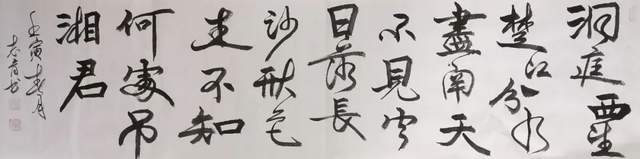 洞庭西望
楚江分水
盡南天
不見雲
日落長
沙秋色
遠不知
何處吊
湘君
壬寅春月
志青书